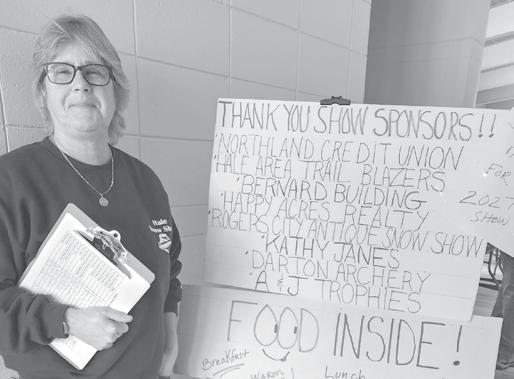 THANK YOU SHOW SPONSORS!!
'NORTHLAND CREDIT UNION
'HALE AREA TRAIL BLAZERS
'BERNARD BUILDING
'HAPPY ACRES REALTY
'ROGERS CITY ANTIQUE SNOW SHOW
'KATHY JANES
'DARTON ARCHERY
'A & J TROPHIES
FOR
202
SHOW
FOOD INSIDE!
Breakfast
Warm
Lunch
Hale